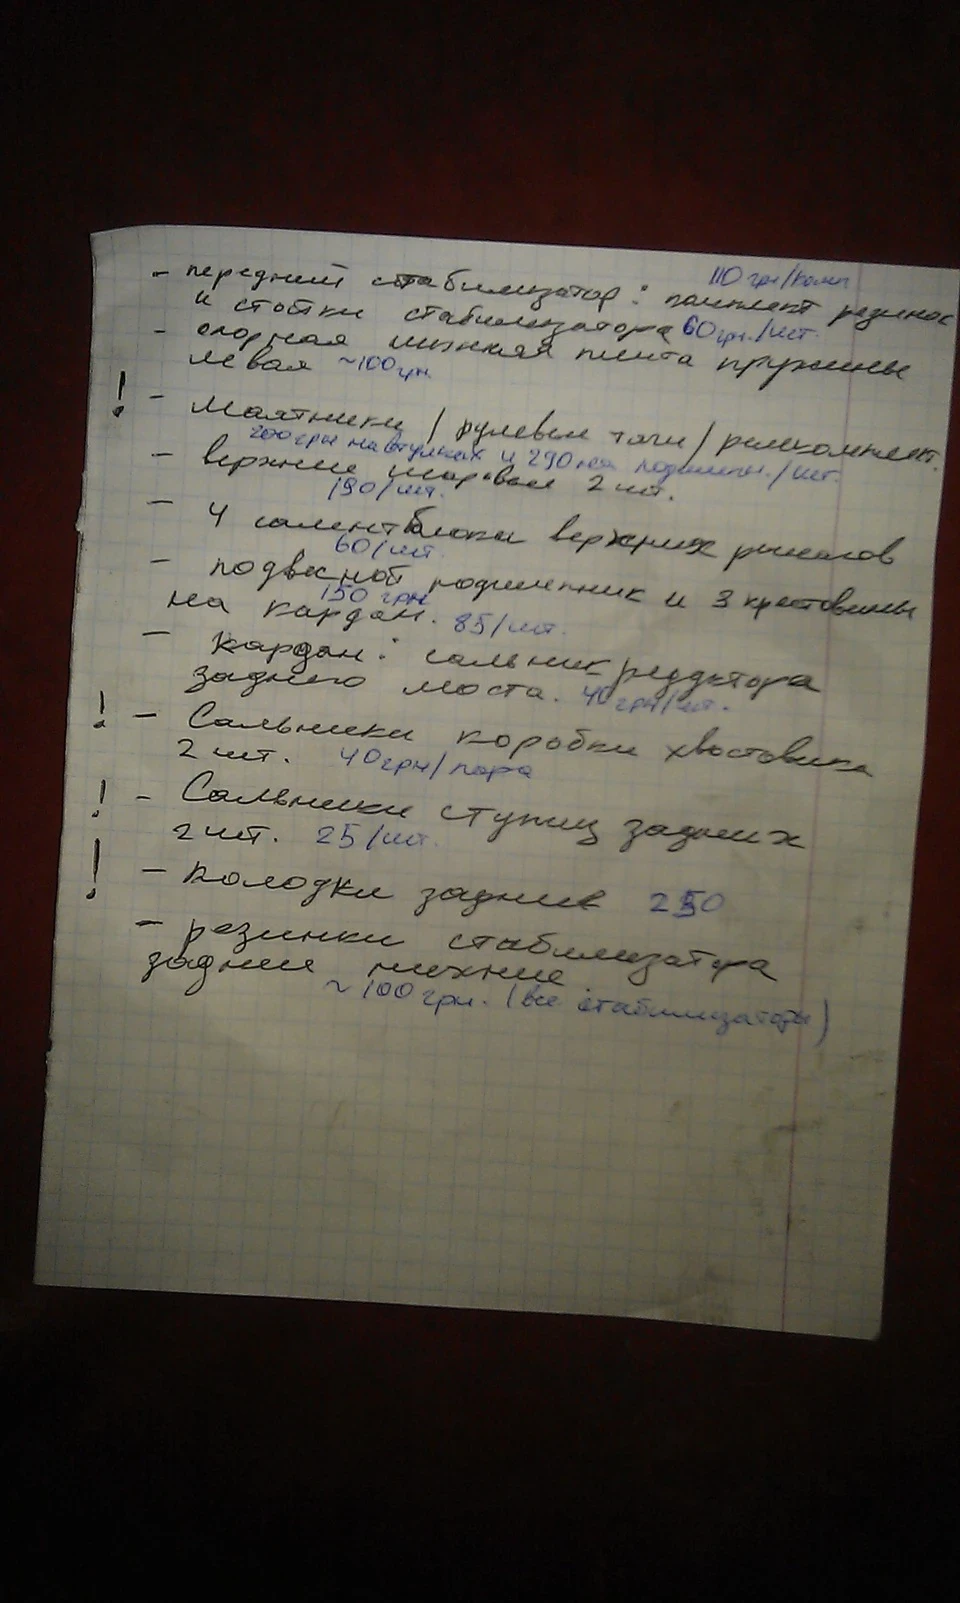 110 грн/комп
- передний стабилизатор: комплект резинок
и стойки стабилизатора 60 грн./шт.
- опорная нижняя плита пружины
левая ~100 грн
! - Маятники / рулевые тяги / ремкомплект.
200 грн на втулках и 290 на подшипн./шт.
- верхние шаровые 2 шт.
190/шт.
- 4 салентблоки верхних рычагов
60/шт
- подвесной подшипник и 3 крестовины
150 грн
на кардан. 85/шт.
- кардан: сальник редуктора
заднего моста. 40 грн/шт.
! - Сальники коробки хвостовика
2 шт. 40 грн/пара
! - Сальники ступиц задних
2 шт. 25/шт.
! - колодки задние 250
- резинки стабилизатора
задние нижние
~100 грн. (все стабилизаторы)